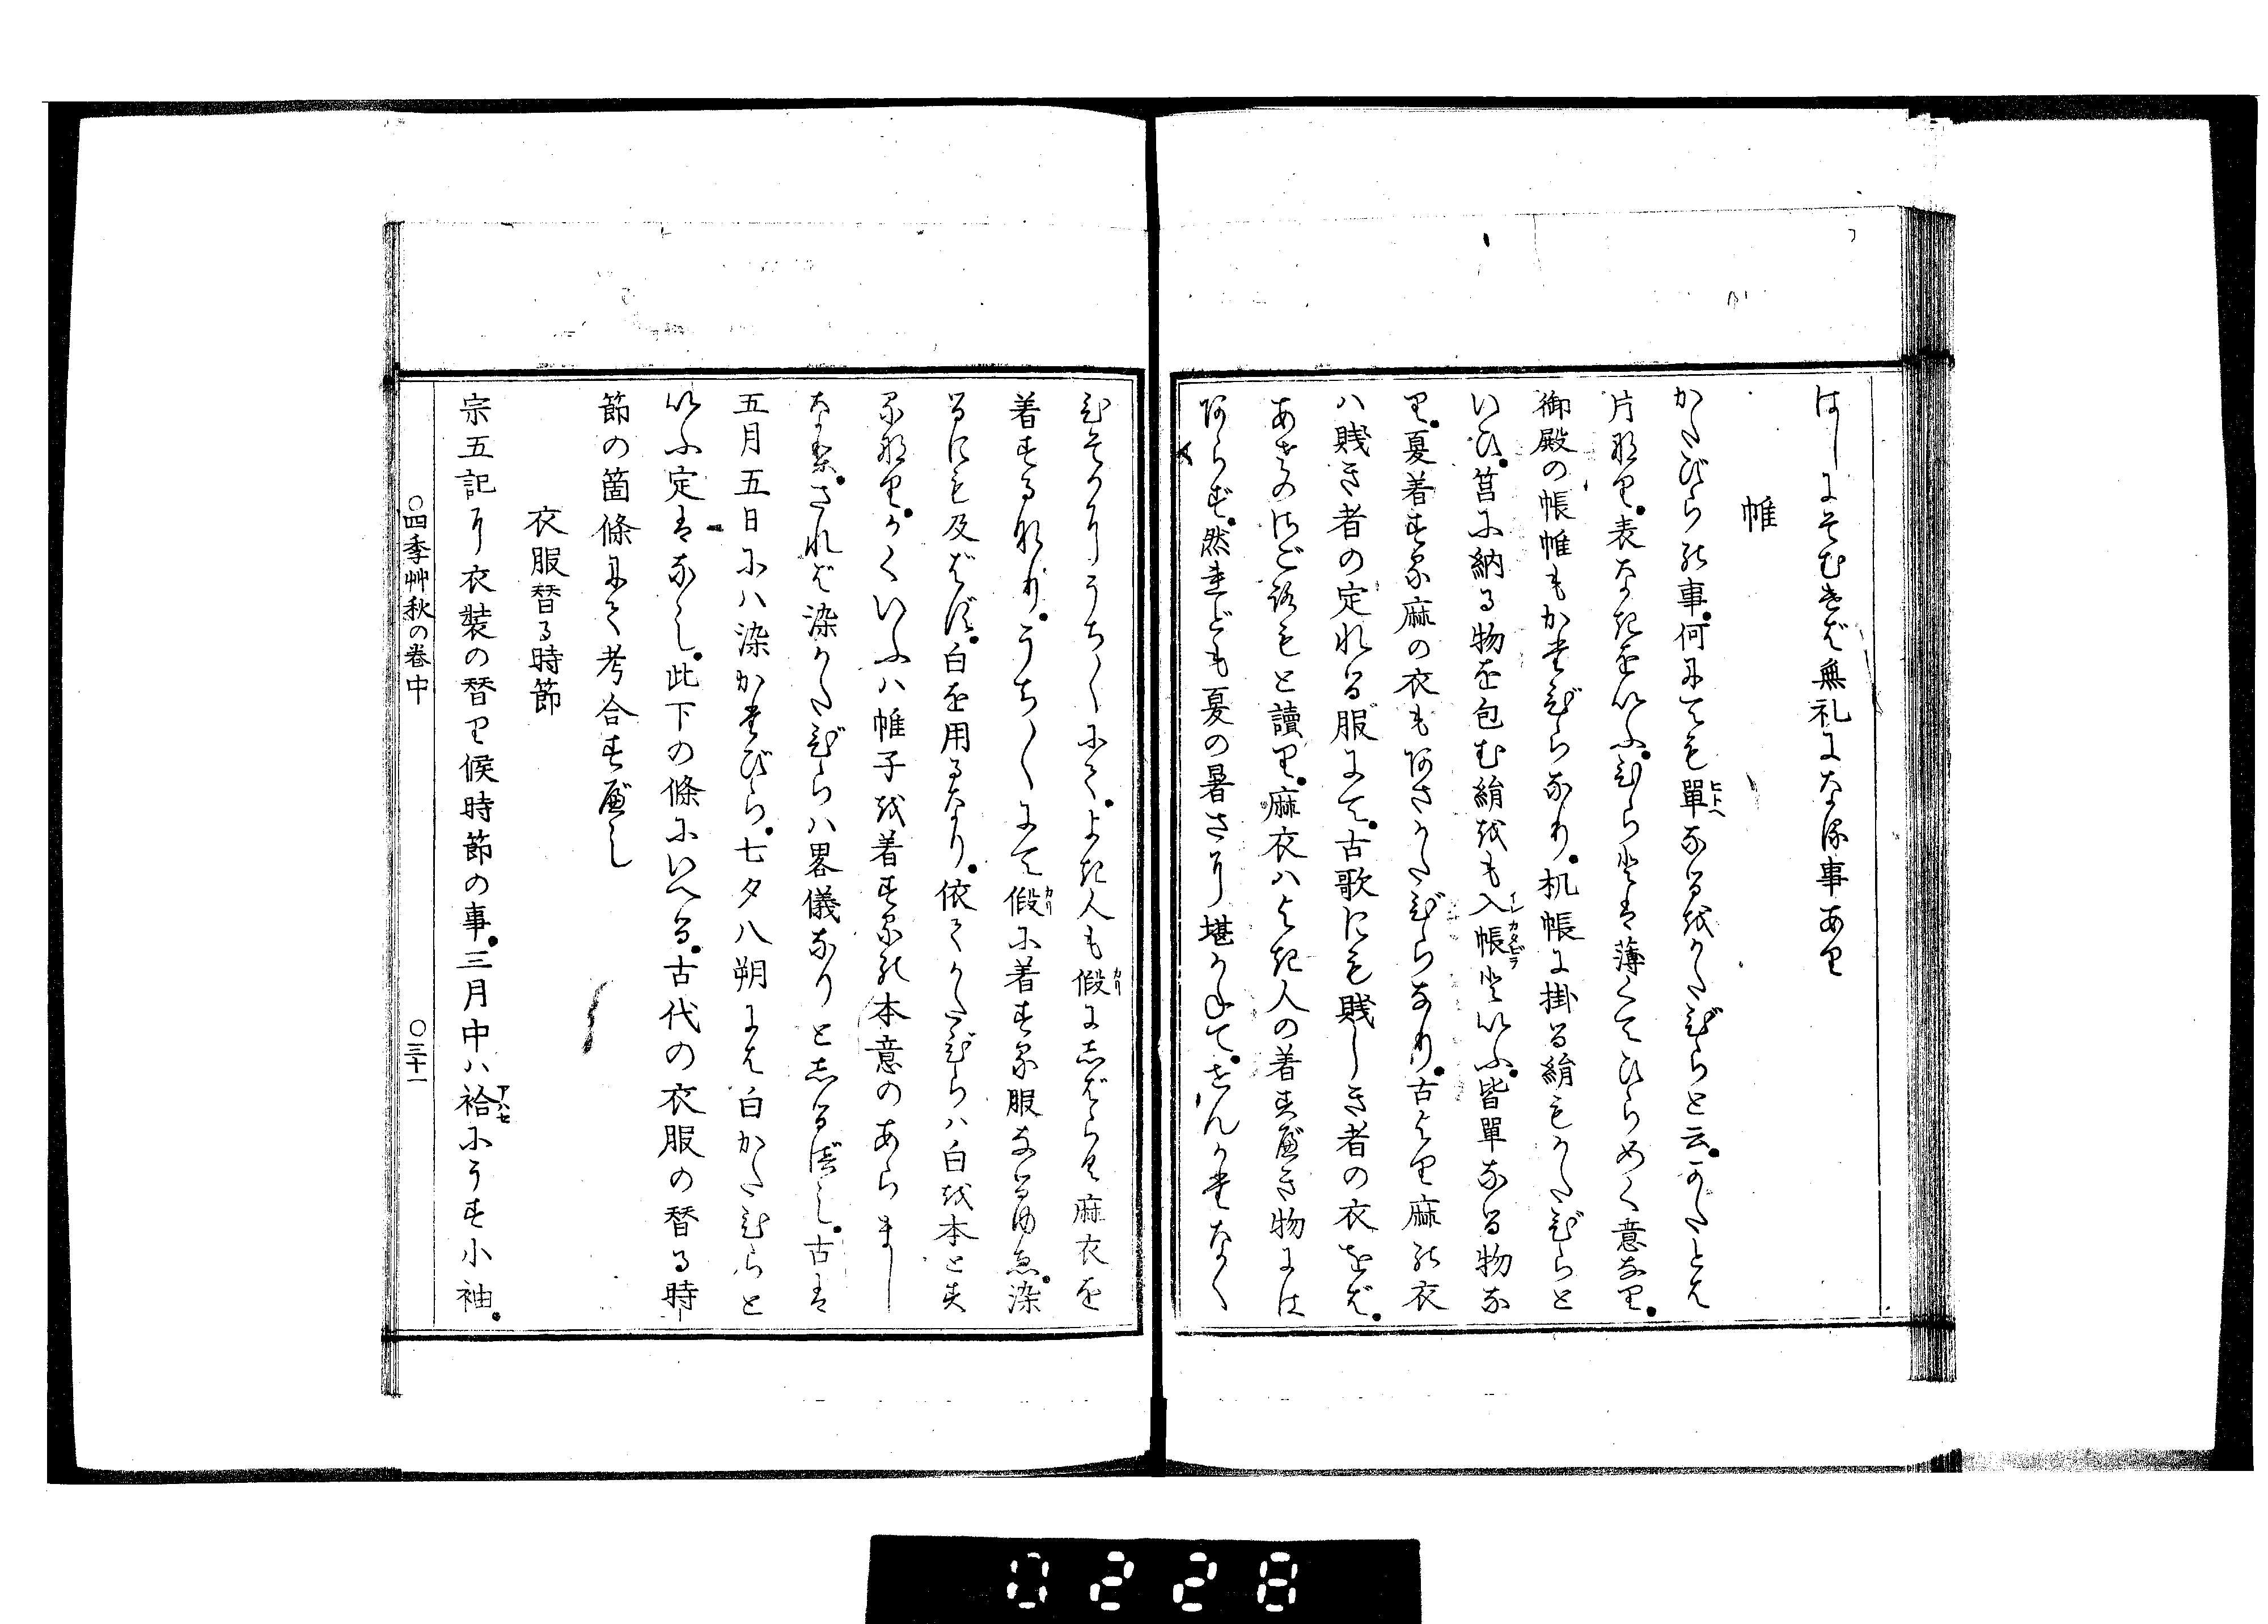 はしにそむきば無礼になる事あり
帷
かたびらの事。何にても單なるをかたびらと云。かたとは
片なり。表なきをいふ。ひらとは薄くてひらめく意なり。
御殿の帳帷もかたびらなり。机帳に掛る絹もかたびらと
いひ。筥に納る物を包む絹をも入帳といふ。皆單なる物な
り。夏着する麻の衣もあさかたびらなり。古より麻の衣
ハ賎き者の定れる服にて。古歌にも賎しき者の衣をば。
あさのさごろもと讀り。麻衣ハよき人の着すべき物には
あらず。然れども夏の暑さに堪かねて。せんかたなく
ひそかにうち〳〵にて。よき人も假にしばらく麻衣を
着するなり。うち〳〵にて假に着する服なるゆゑ。染
るにも及ばず。白を用るなり。依てかたびらハ白を本とす
るなり。かくいふハ帷子を着するの本意のあらまし
なり。されば染かたびらハ畧儀なりとしるべし。古は
五月五日にハ染かたびら。七夕八朔には白かたびらと
いふ定はなし。此下の條にいへる。古代の衣服の替る時
節の箇條にて考合すべし
衣服替る時節
宗五記に衣裝の替り候時節の事。三月中ハ袷にうす小袖。
○四季艸秋の巻中
○三十一
ヒトヘ
イレカタビラ
カリ
カリ
アハセ
0228